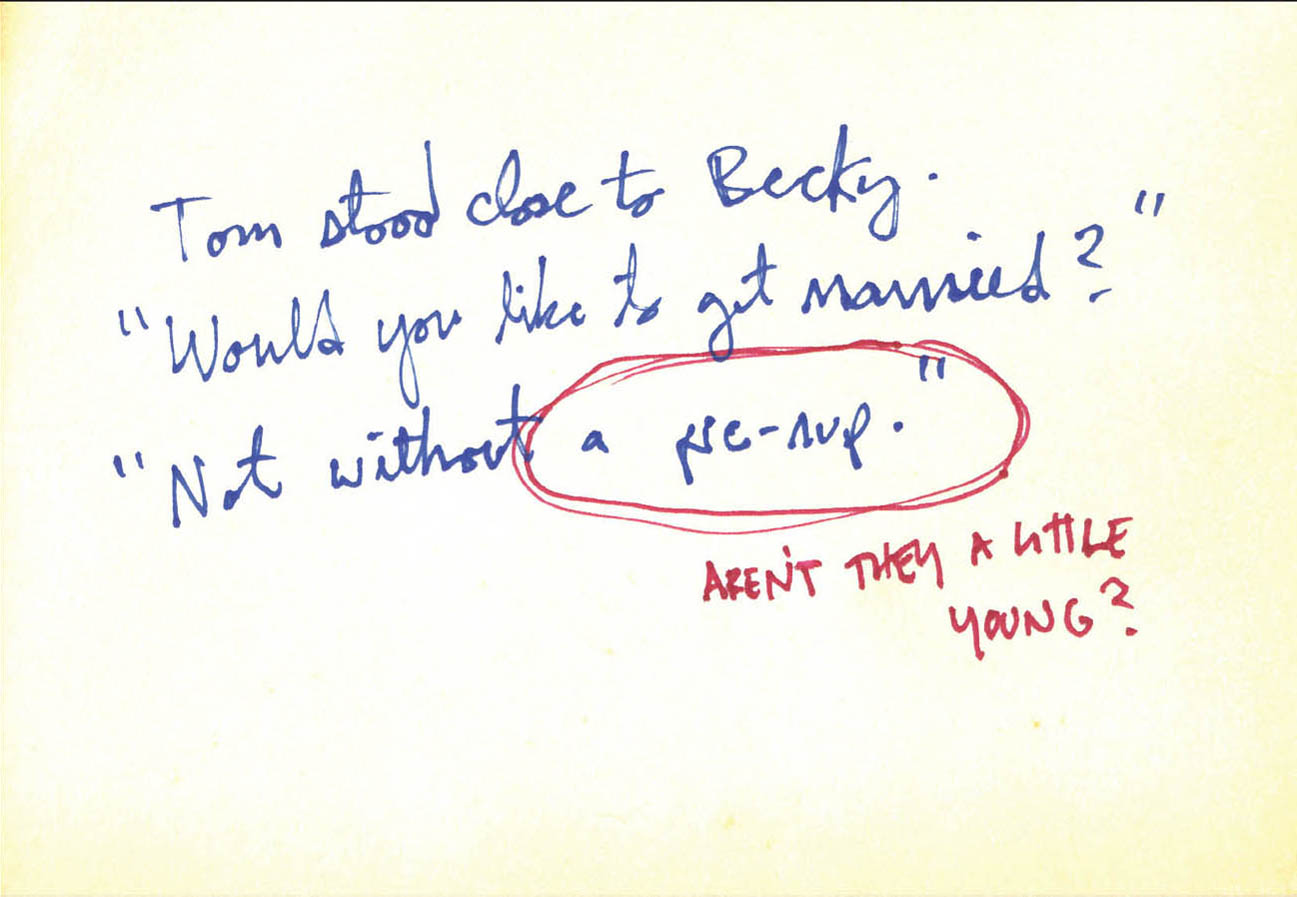 Tom stood close to Becky.
"Would you like to get married?"
"Not without a pre-nup."
AREN'T THEY A LITTLE
YOUNG?